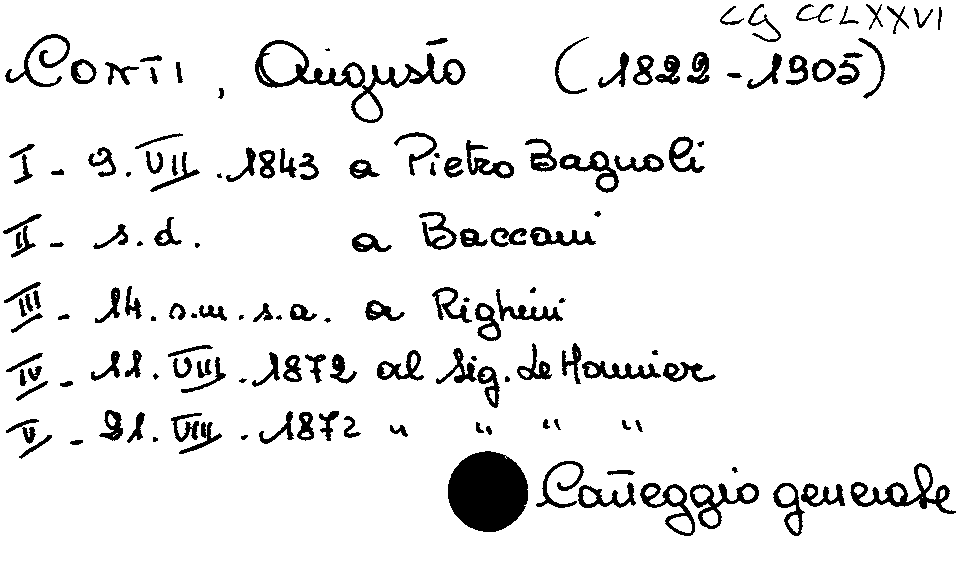 CG CCLXXVI
CONTI, Augusto (1822-1905)
I - 9.VII.1843 a Pietro Bagnoli
II - s.d. a Baccani
III - 14.s.m.s.a. a Righini
IV - 11.VIII.1872 al Sig. Le Monnier
V - 21.VIII.1872 " " " "
Carteggio generale